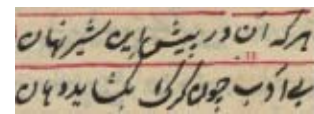 هر که آن در پیش این شیر نهان
بی ادب چون گرگ بگشاید دهان